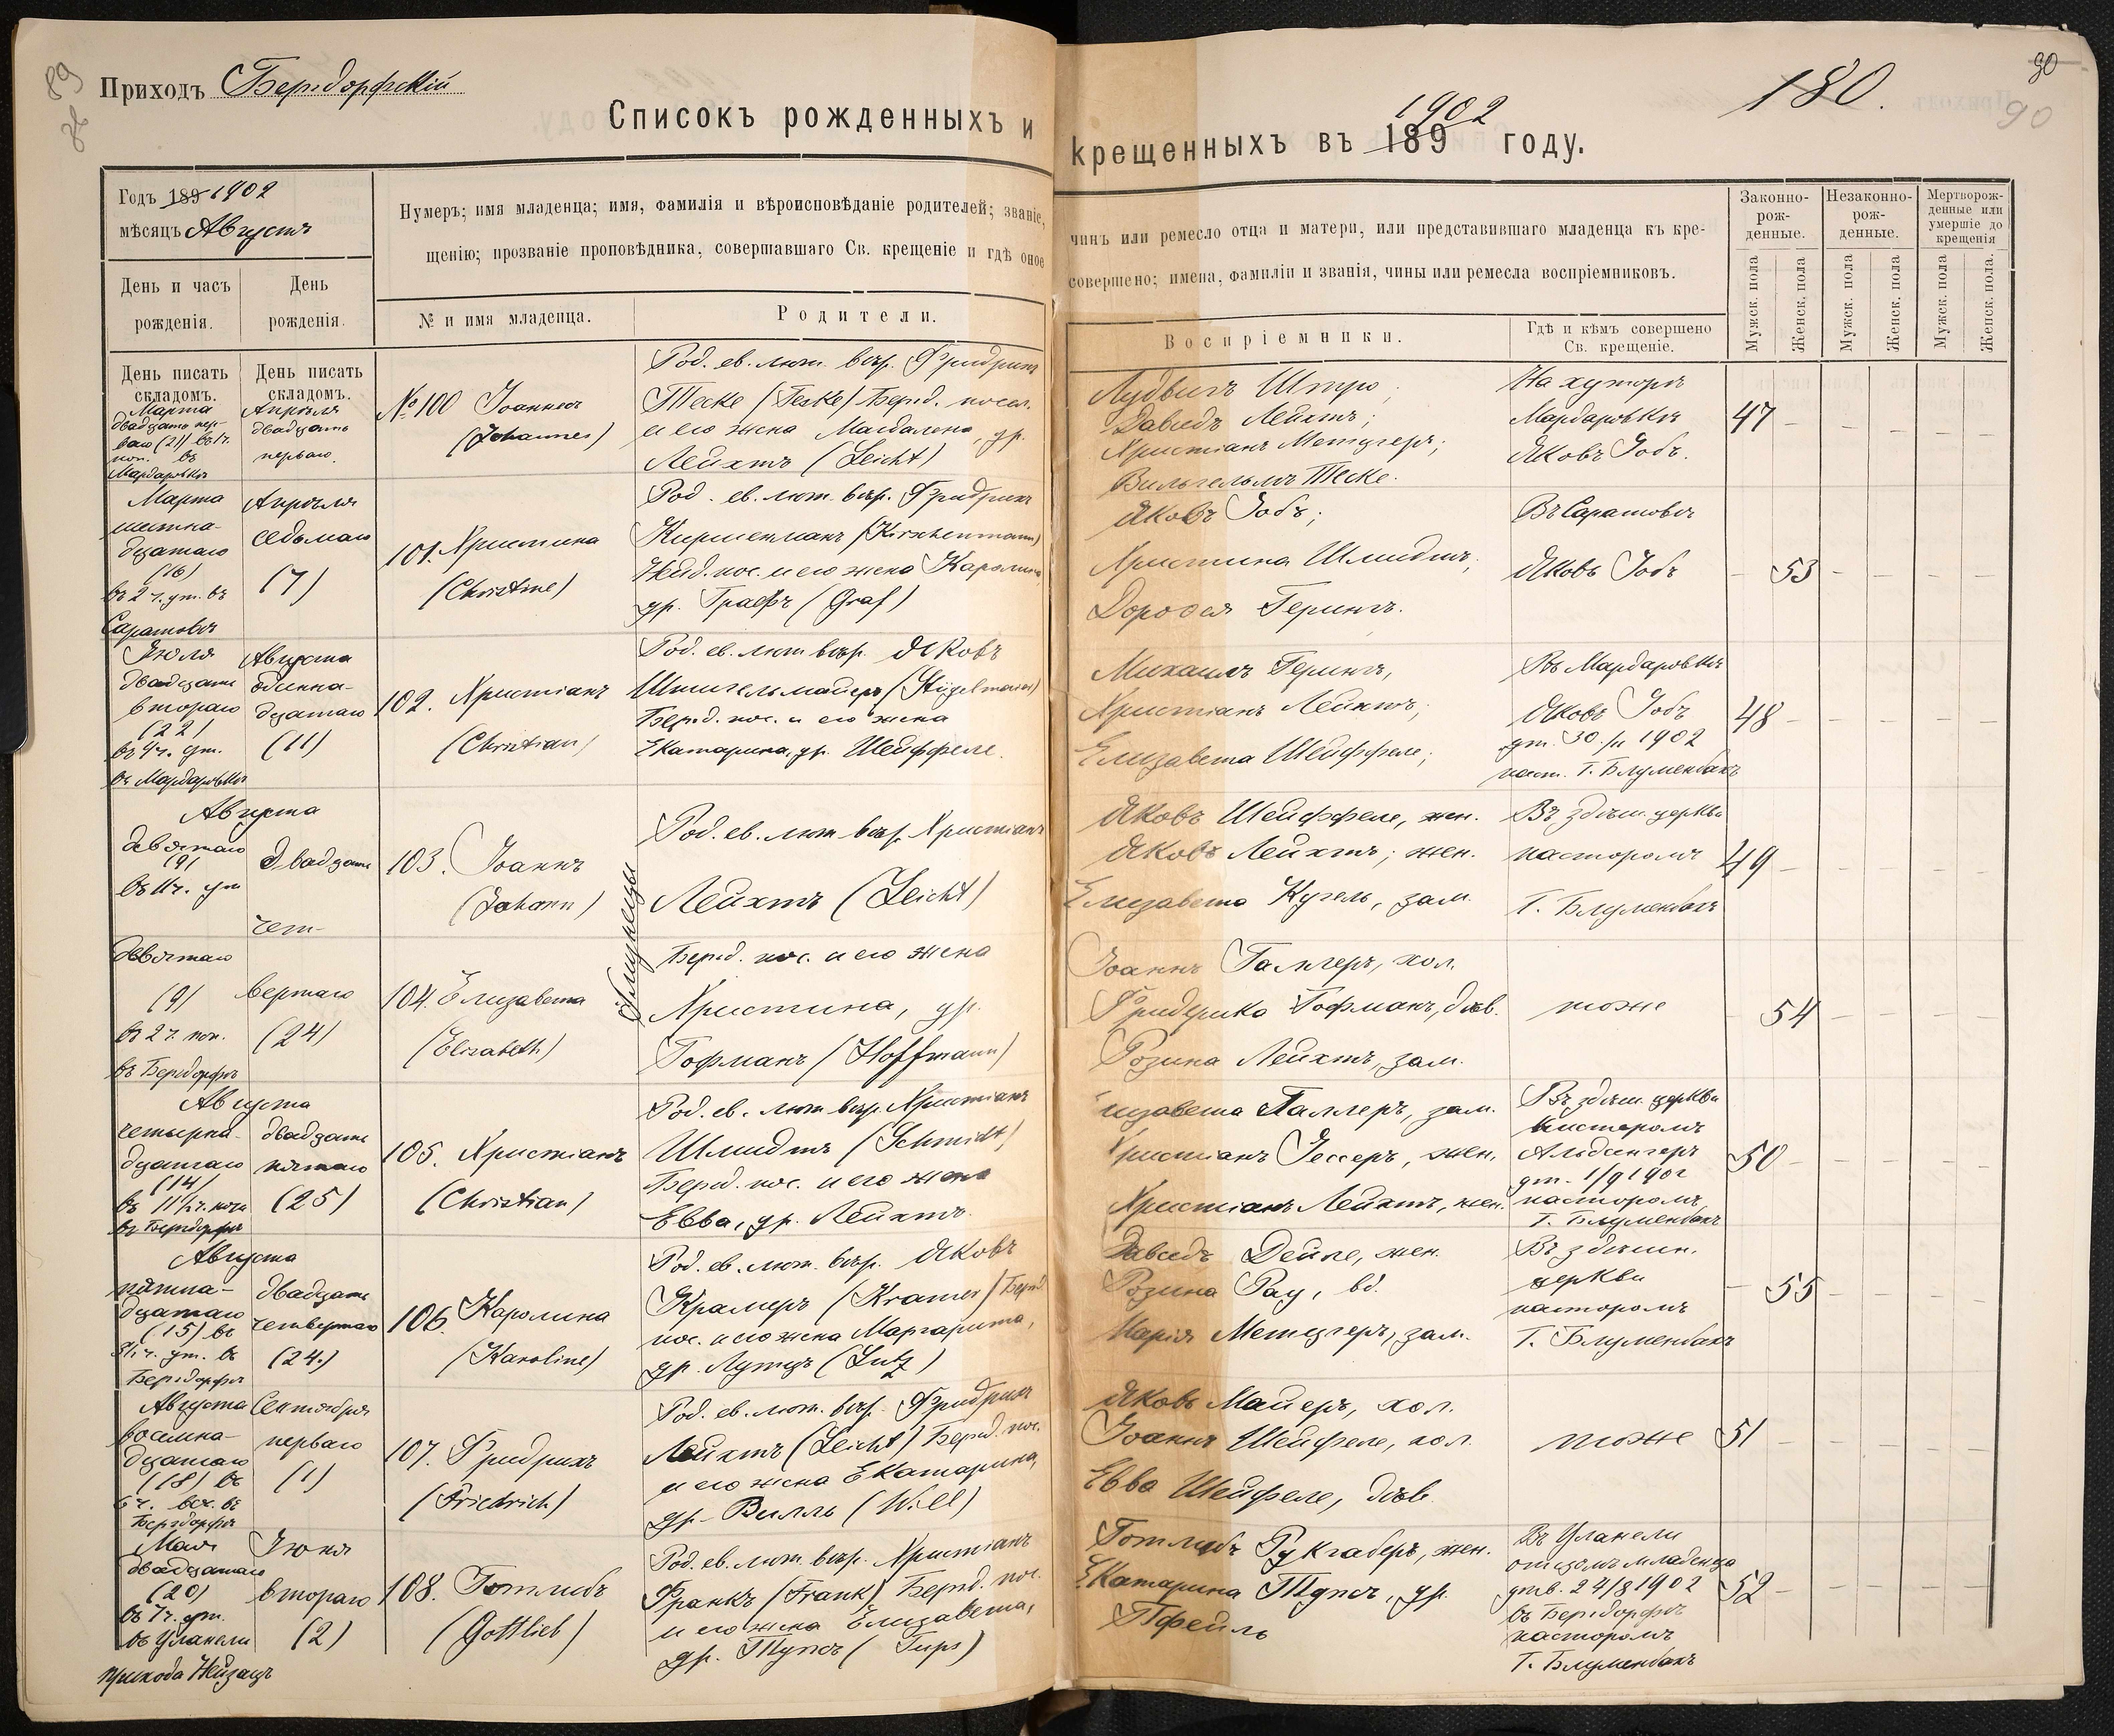 89
Приходъ Бергдорфскій
Списокъ рожденныхъ и
Годъ 189 1902
мѣсяцъ Августъ
Нумеръ; имя младенца; имя, фамилія и вѣроисповѣданіе родителей; званіе,
щенію; прозваніе проповѣдника, совершавшаго Св. крещеніе и гдѣ оное
День и часъ рожденія.
День рожденія.
№ и имя младенца.
Родители.
День писать складомъ.
День писать складомъ.
Марта
двадцать пер-
ваго (21) въ 1 ч.
поп. въ
Мардаровкѣ
Апрѣля
двадцать
перваго
№ 100 Іоаннесъ
(Johannes)
Род. ев. лют. вѣр. Фридрихъ
Теске (Teske) Бергд. посел.
и его жена Магдалена, ур.
Лейхтъ (Leicht)
Марта
шестна-
дцатаго
(16)
въ 2 ч. ут. въ
Саратовѣ
Апрѣля
седьмаго
(7)
101. Христина
(Christine)
Род. ев. лют. вѣр. Фридрихъ
Киршенманъ (Kirschenmann)
Нейд. пос. и его жена Каролина
ур. Графъ (Graf)
Іюля
двадцать
втораго
(22)
въ 4 ч. ут.
въ Мардаровкѣ
Августа
одинна-
дцатаго
(11)
102. Христіанъ
(Christian)
Род. ев. лют. вѣр. Яковъ
Бергд. пос. и его жена
Екатарина, ур. Шейффеле.
Августа
девятаго
(9)
въ 11 ч. ут
двадцать
103. Іоаннъ
(Johann)
Близнецы
Род. ев. лют. вѣр. Христіанъ
Лейхтъ (Leicht)
чет-
девятаго
(9)
въ 2 ч. поп.
въ Бергдорфѣ
вертаго
(24)
104. Елизавета
(Elisabeth)
Бергд. пос. и его жена
Христина, ур.
Гофманъ (Hoffmann)
Августа
четырна-
дцатаго
(14)
въ 11½ ч. ночи
въ Бергдорфѣ
двадцать
пятаго
(25)
105. Христіанъ
(Christian)
Род. ев. лют. вѣр. Христіанъ
Шмидтъ (Schmidt)
Бергд. пос. и его жена
Евва, ур. Лейхтъ.
Августа
пятна-
дцатаго
(15) въ
ч. ут. въ
Бергдорфѣ
двадцать
четвертаго
(24.)
106. Каролина
(Karoline)
Род. ев. лют. вѣр. Яковъ
Крамеръ (Kramer) Бергд.
пос. и его жена Маргарита,
ур. Лутцъ (Lutz)
Августа
восемна-
дцатаго
(18) въ
6 ч. веч. въ
Бергдорфѣ
Сентября
перваго
(1)
107. Фридрихъ
(Friedrich)
Род. ев. лют. вѣр. Фридрихъ
Лейхтъ (Leicht) Бергд. пос.
и его жена Екатарина,
ур. Вилль (Will)
Мая
двадцатаго
(20)
въ 7 ч. ут.
въ Уланели
прихода Нейзацъ
Іюня
втораго
(2)
108. Готлибъ
(Gottlieb)
Род. ев. лют. вѣр. Христіанъ
Франкъ (Frank) Бергд. пос.
и его жена Елизавета,
ур. Тупсъ (Tups)
180.
90
90
крещенныхъ въ 189 1902 году.
чинъ или ремесло отца и матери, или представившаго младенца къ кре-
совершено; имена, фамиліи и званія, чины или ремесла воспріемниковъ.
Воспріемники.
Гдѣ и кѣмъ совершено Св. крещеніе.
Законно-рож-денные.
Незаконно-рож-денные.
Мертворож-денные или умершіе до крещенія
Мужск. пола
Женск. пола
Мужск. пола
Женск. пола
Мужск. пола
Женск. пола.
Лудвигъ Штро,
Давидъ Лейхтъ;
Христіанъ Метцгеръ;
Вильгельмъ Теске.
На хуторѣ
Мардаровкѣ
Яковъ Іобъ.
47
Яковъ Іобъ;
Христина Шмидтъ;
Доротея Герингъ.
Въ Саратовѣ
Яковъ Іобъ
53
Михаилъ Герингъ,
Христіанъ Лейхтъ;
Елизавета Шейффеле;
Въ Мардаровкѣ
Яковъ Іобъ
ут. 30. 1902
паст. Г. Блуменбахъ
48
Яковъ Шейффеле, жен.
Яковъ Лейхтъ; жен.
Елизавета Кугель, зам.
Въ здѣш. церкви
пасторомъ
Г. Блуменбахъ
49
Іоаннъ Галлеръ, хол.
Фридерика Гофманъ, дѣв.
Розина Лейхтъ, зам.
тоже
54
изавета Галлеръ, зам.
Христіанъ Гессеръ, жен.
Христіанъ Лейхтъ, жен.
Въ здѣш. церкви
кистеромъ
Альдингеръ
ут. 1/9 1902
пасторомъ
Г. Блуменбахъ
50
Давидъ Дейле, жен.
Розина Рау, вд.
Марія Метцгеръ, зам.
Въ здѣшн.
церкви
пасторомъ
Г. Блуменбахъ
55
Яковъ Майеръ, хол.
Іоаннъ Шейфеле, хол.
Евва Шейфеле, дѣв.
тоже
51
Готлибъ Рукгаберъ, жен.
Екатарина Тупсъ, ур.
Пфейль
Въ Уланели
отцомъ младенца
утв. 24/8 1902
въ Бергдорфѣ
пасторомъ
Г. Блуменбахъ
52